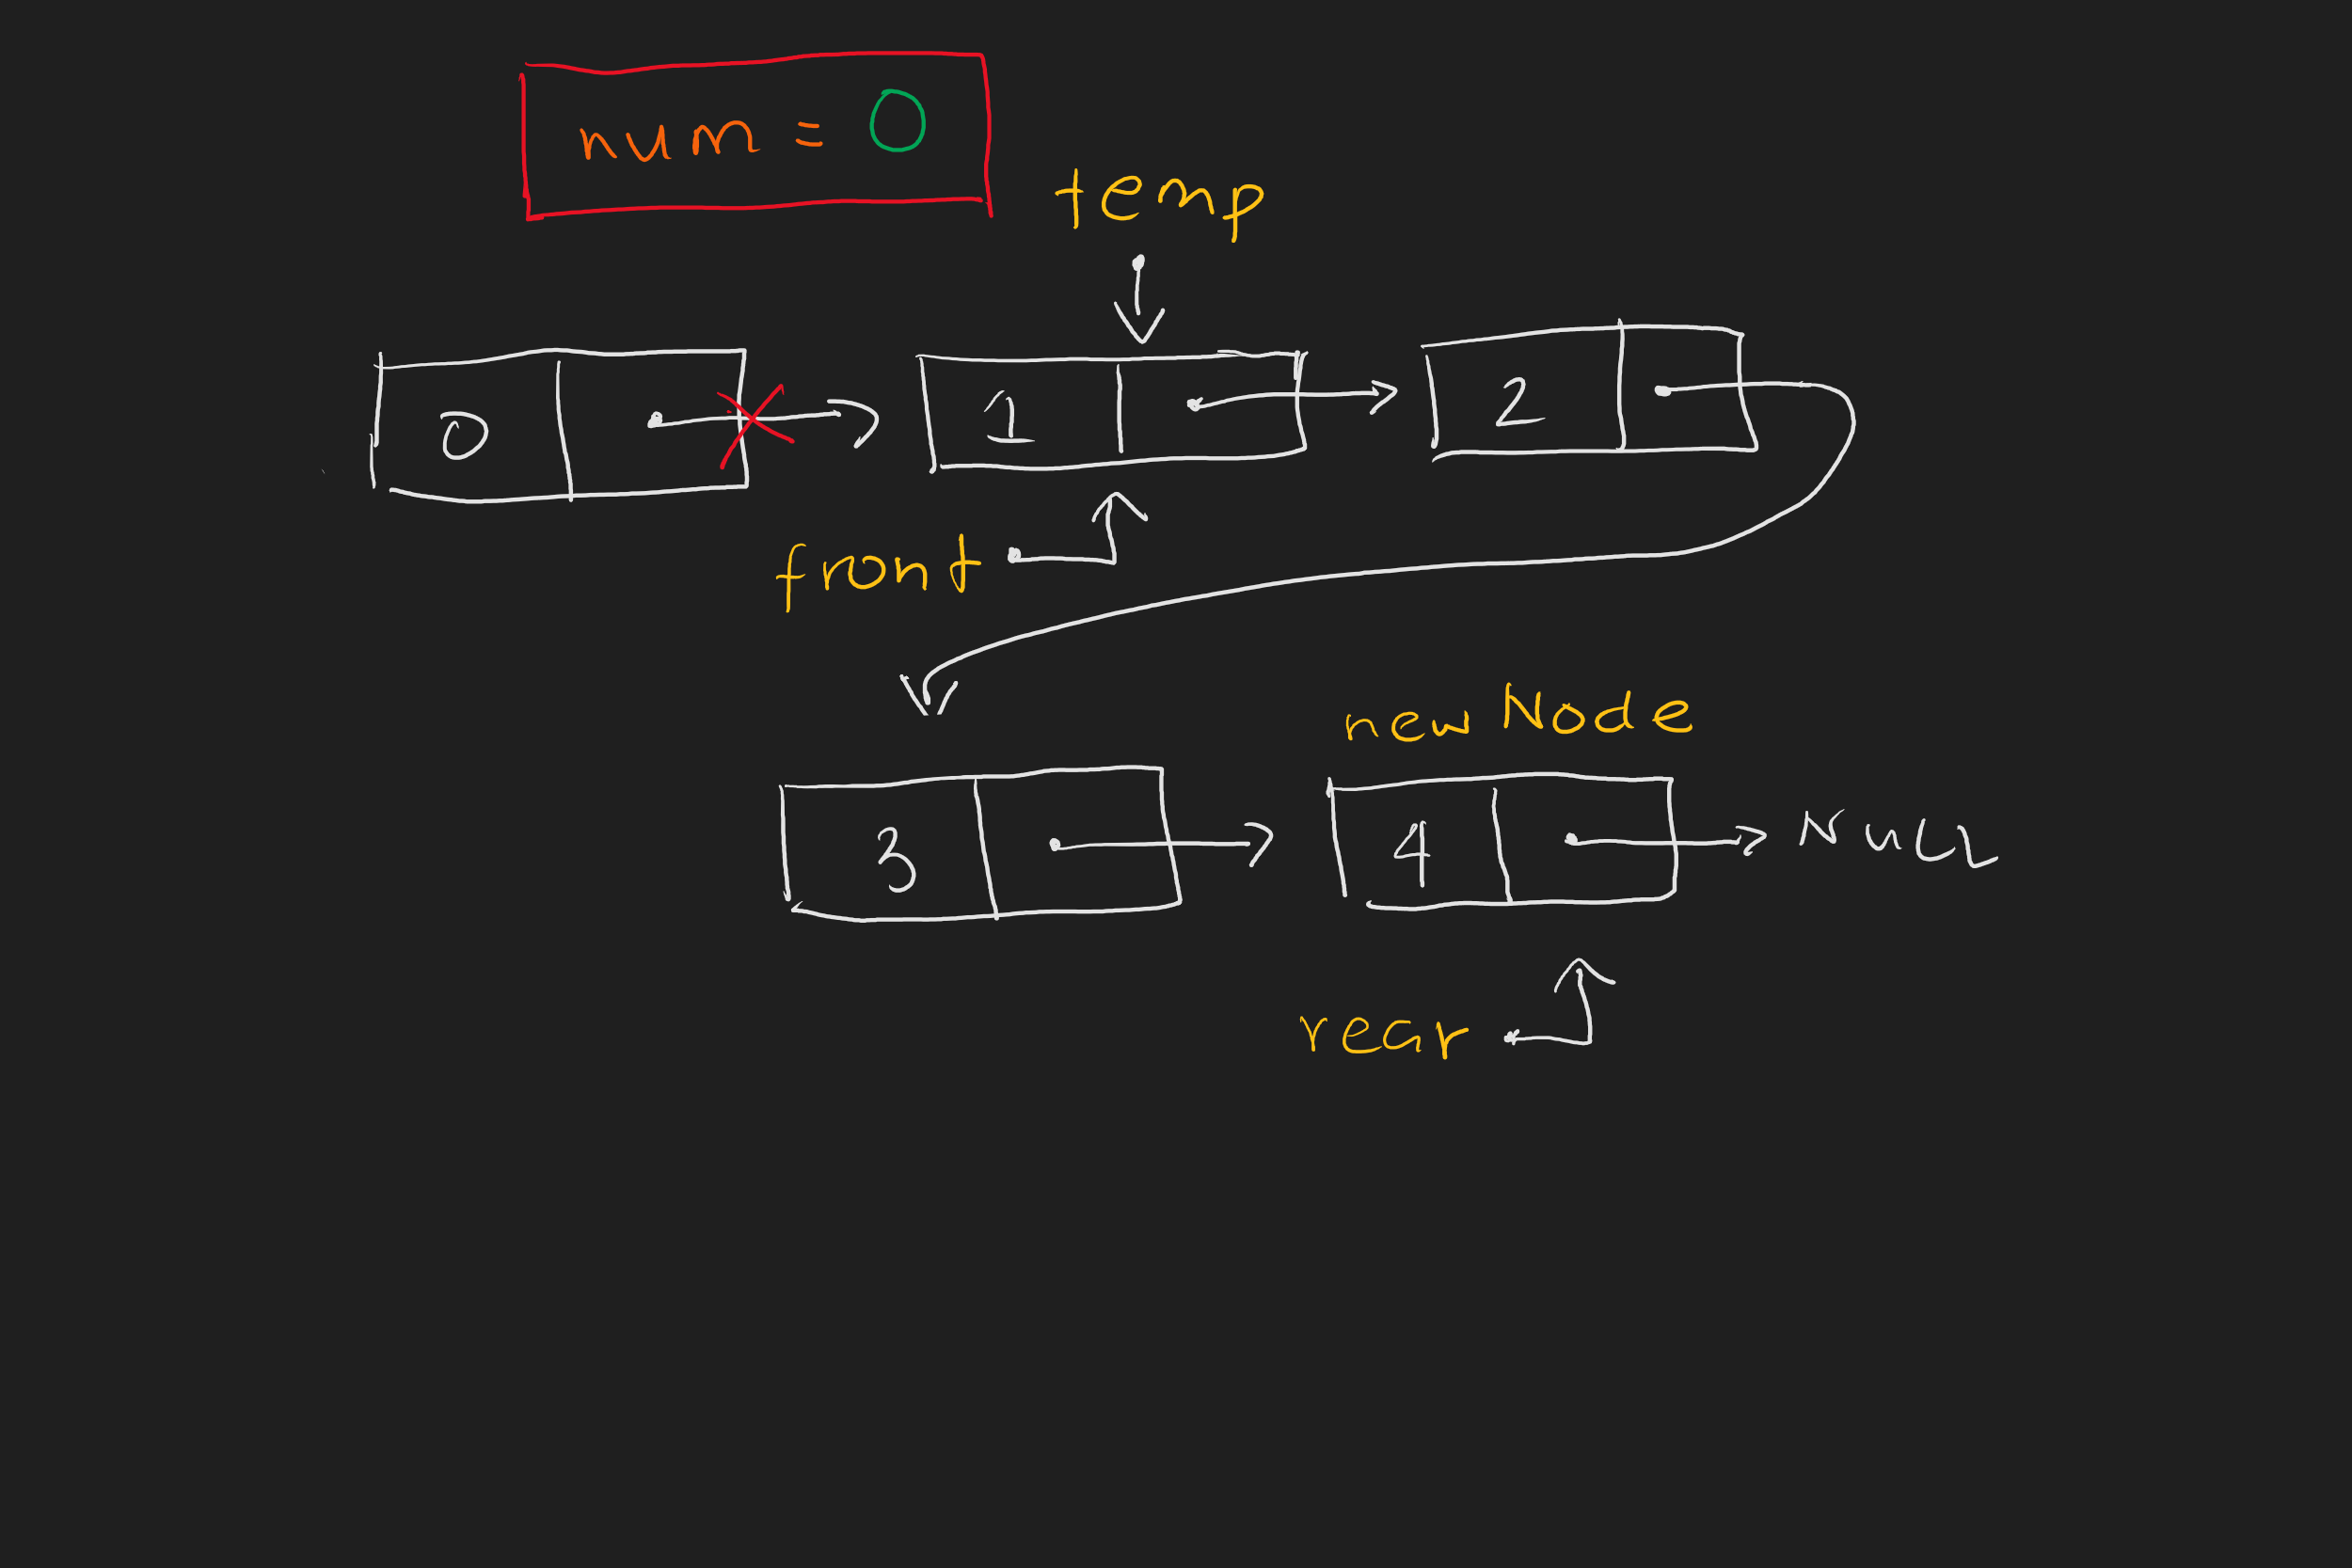 num = 0
temp
0 1 2
front
newNode
3 4 NULL
rear